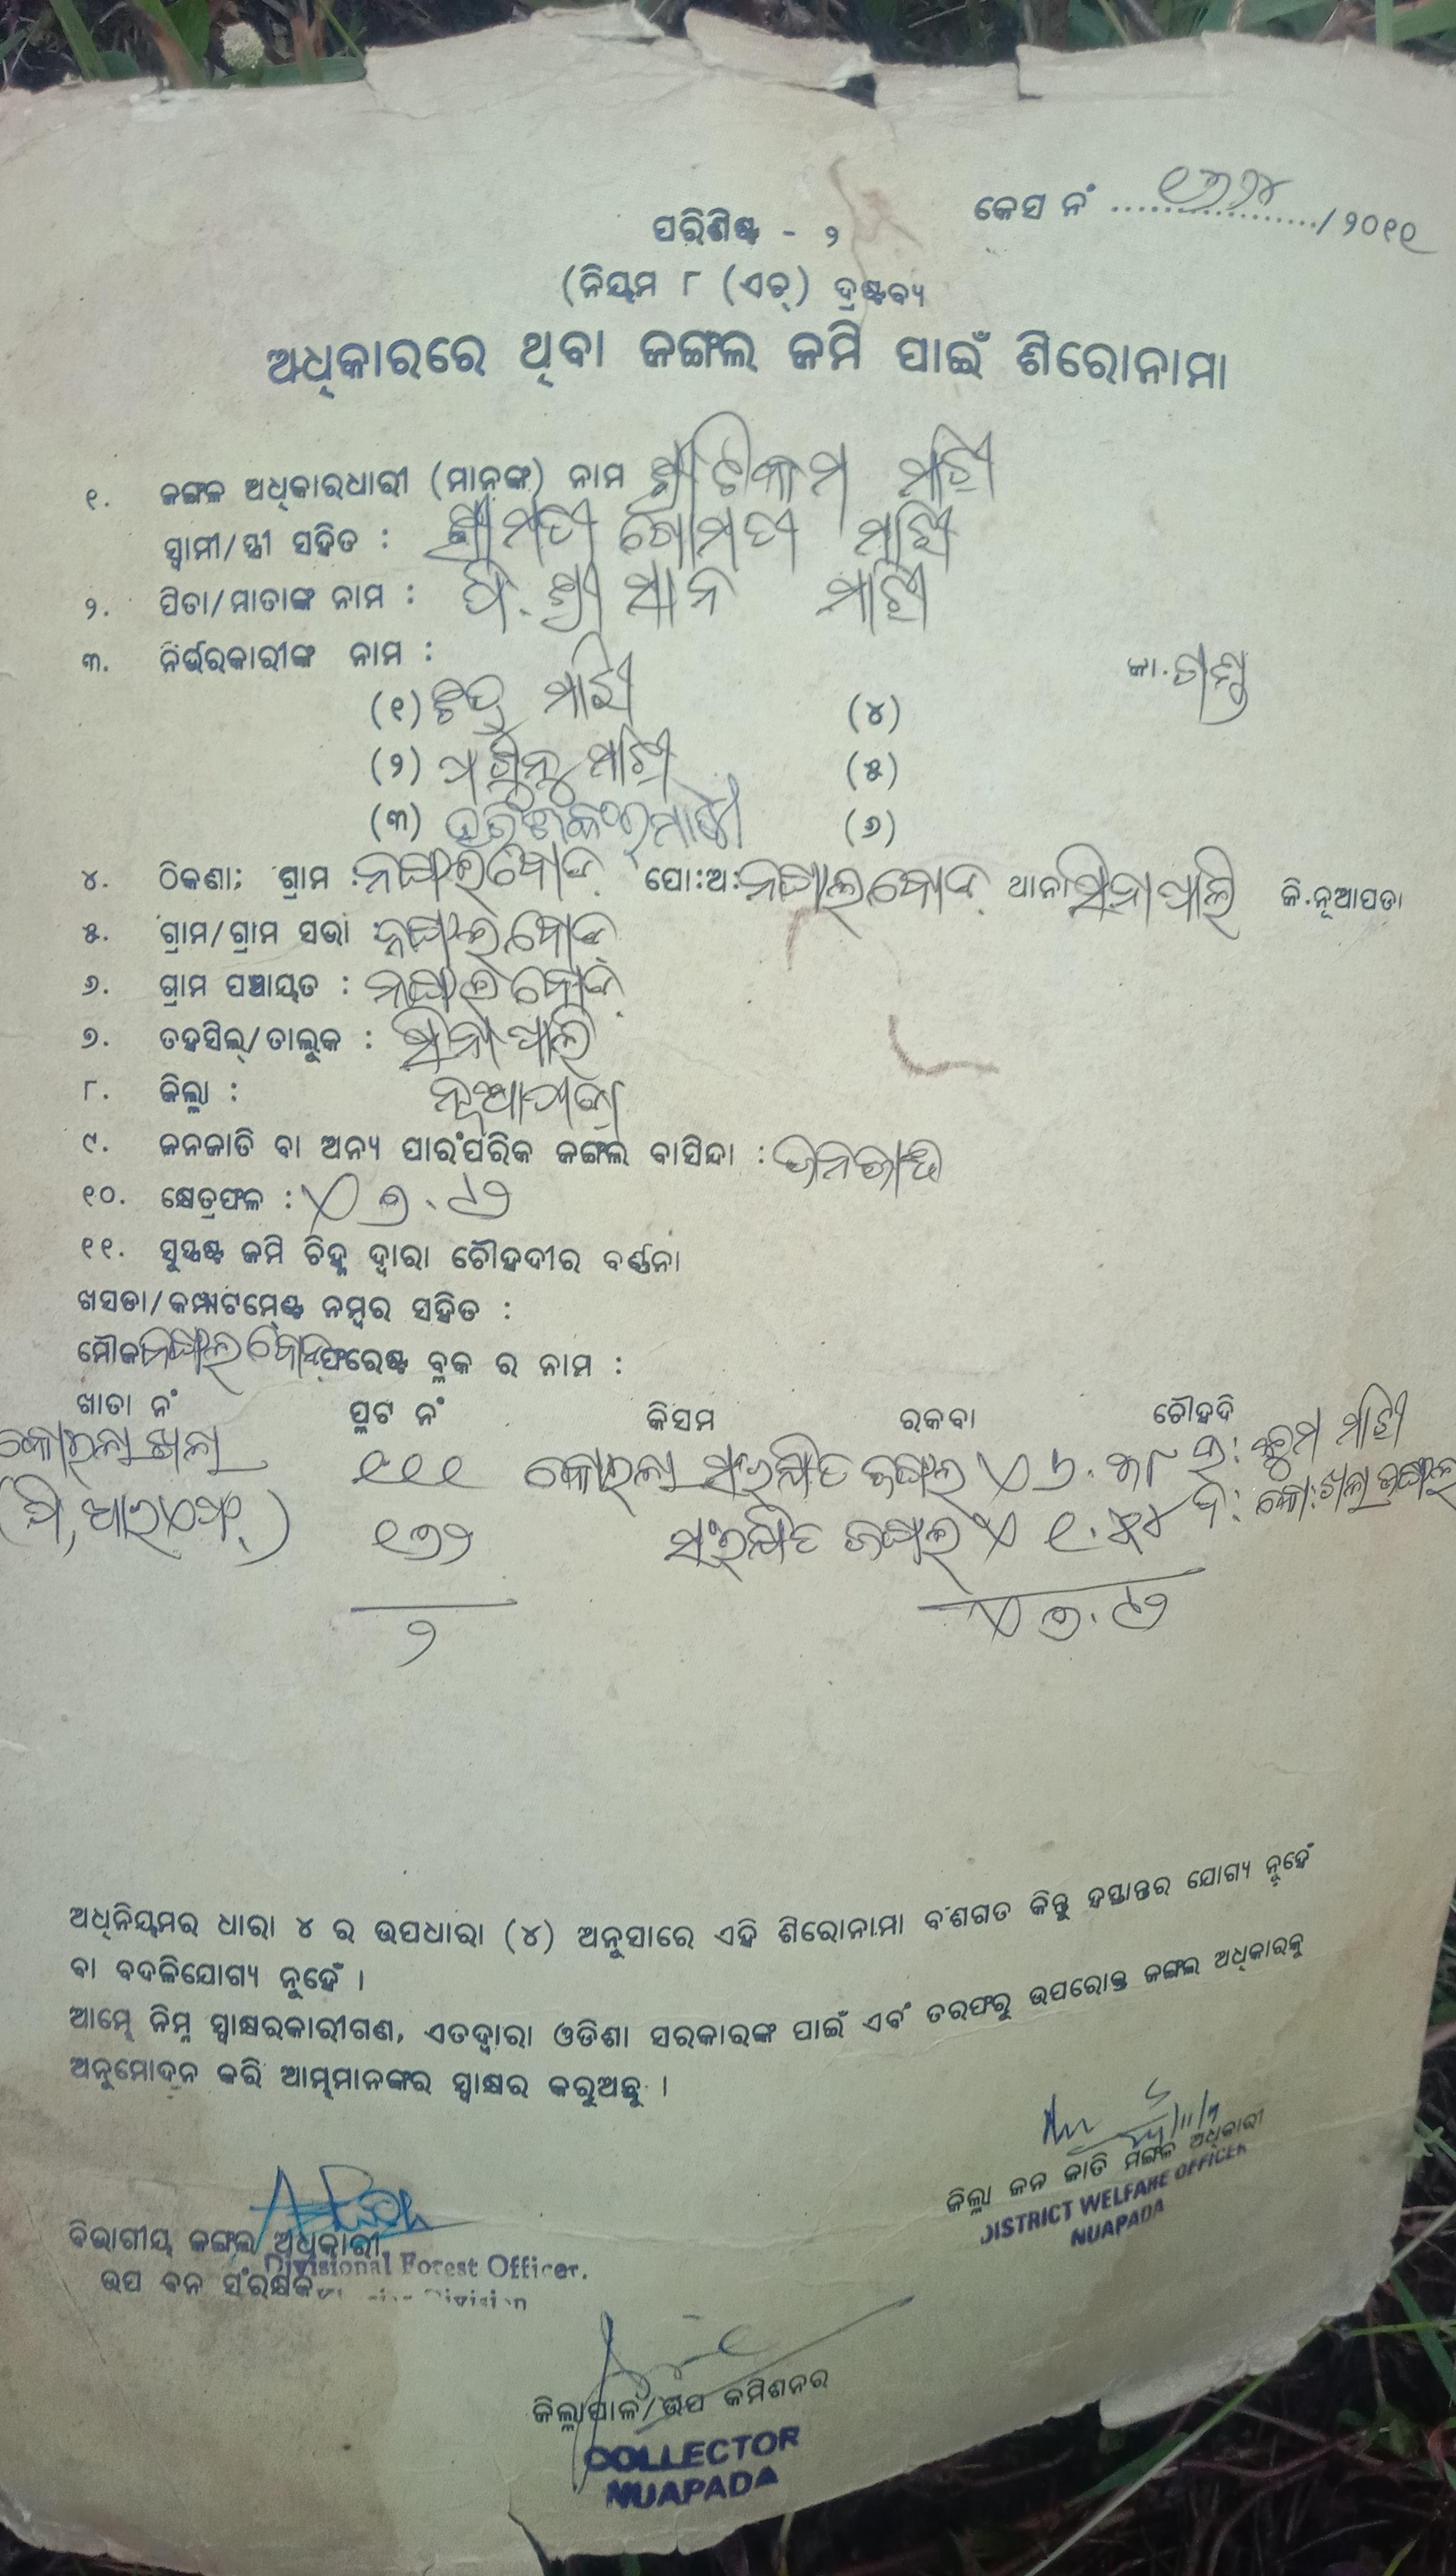 କେସ ନଂ ୧୭୨୪ / ୨୦୧୧
ପରିଶିଷ୍ଟ - ୨
(ନିୟମ ୮ (ଏଚ୍) ଦ୍ରଷ୍ଟବ୍ୟ
ଅଧିକାରରେ ଥିବା ଜଙ୍ଗଲ ଜମି ପାଇଁ ଶିରୋନାମା
୧. ଜଙ୍ଗଳ ଅଧିକାରଧାରୀ (ମାନଙ୍କ) ନାମ ଶ୍ରୀ ଟିକାମ ମାଝୀ
ସ୍ୱାମୀ/ସ୍ତ୍ରୀ ସହିତ : ଶ୍ରୀମତୀ ଗୋମତୀ ମାଝୀ
୨. ପିତା/ମାତାଙ୍କ ନାମ : ପି. ଶ୍ରୀ ମାନ ମାଝୀ
୩. ନିର୍ଭରକାରୀଙ୍କ ନାମ : ଜା. ଗଣ୍ଡ
(୧) ଛିତୁ ମାଝୀ (୪)
(୨) ମାଝୀ (୫)
(୩) ମାଝୀ (୬)
୪. ଠିକଣା: ଗ୍ରାମ : ନଙ୍ଗଲବୋଡ଼ ପୋ:ଅ: ନଙ୍ଗଲବୋଡ଼ ଥାନା ସିନାପାଲି ଜି.ନୂଆପଡା
୫. ଗ୍ରାମ/ଗ୍ରାମ ସଭା : ନଙ୍ଗଲବୋଡ଼
୬. ଗ୍ରାମ ପଞ୍ଚାୟତ : ନଙ୍ଗଲବୋଡ଼
୭. ତହସିଲ୍/ତାଲୁକ : ସିନାପାଲି
୮. ଜିଲ୍ଲା : ନୂଆପଡା
୯. ଜନଜାତି ବା ଅନ୍ୟ ପାରଂପରିକ ଜଙ୍ଗଲ ବାସିନ୍ଦା : ଜନଜାତି
୧୦. କ୍ଷେତ୍ରଫଳ : ୭.୯୨
୧୧. ସୁସ୍ପଷ୍ଟ ଜମି ଚିହ୍ନ ଦ୍ୱାରା ଚୌହଦୀର ବର୍ଣ୍ଣନା
ଖସଡା/କମ୍ପାଟମେଣ୍ଟ ନମ୍ବର ସହିତ :
ମୌଜା ନଙ୍ଗଲବୋଡ଼ ଫରେଷ୍ଟ ବ୍ଲକ ର ନାମ :
ଖାତା ନଂ ପ୍ଲଟ ନଂ କିସମ ରକବା ଚୌହଦି
୧୧୧ ସଂରକ୍ଷିତ ଜଙ୍ଗଲ ୬.୩୮ ଉ: ମାଝୀ
୧୭୨ ସଂରକ୍ଷିତ ଜଙ୍ଗଲ ୧.୫୪ ଦ: ଜଙ୍ଗଲ
୨ ୭.୯୨
ଅଧିନିୟମର ଧାରା ୪ ର ଉପଧାରା (୪) ଅନୁସାରେ ଏହି ଶିରୋନାମା ବଂଶଗତ କିନ୍ତୁ ହସ୍ତାନ୍ତର ଯୋଗ୍ୟ ନୁହେଁ
ବା ବଦଳିଯୋଗ୍ୟ ନୁହେଁ ।
ଆମ୍ଭେ ନିମ୍ନ ସ୍ୱାକ୍ଷରକାରୀଗଣ, ଏତଦ୍ୱାରା ଓଡିଶା ସରକାରଙ୍କ ପାଇଁ ଏବଂ ତରଫରୁ ଉପରୋକ୍ତ ଜଙ୍ଗଲ ଅଧିକାରକୁ
ଅନୁମୋଦନ କରି ଆମ୍ଭମାନଙ୍କର ସ୍ୱାକ୍ଷର କରୁଅଛୁ ।
ଜିଲ୍ଲା ଜନ ଜାତି ମଙ୍ଗଳ ଅଧିକାରୀ
DISTRICT WELFARE OFFICER
NUAPADA
ବିଭାଗୀୟ ଜଙ୍ଗଲ ଅଧିକାରୀ
Divisional Forest Officer.
ଉପ ବନ ସଂରକ୍ଷକ
Division
ଜିଲ୍ଲାପାଳ/ଉପ କମିଶନର
COLLECTOR
NUAPADA